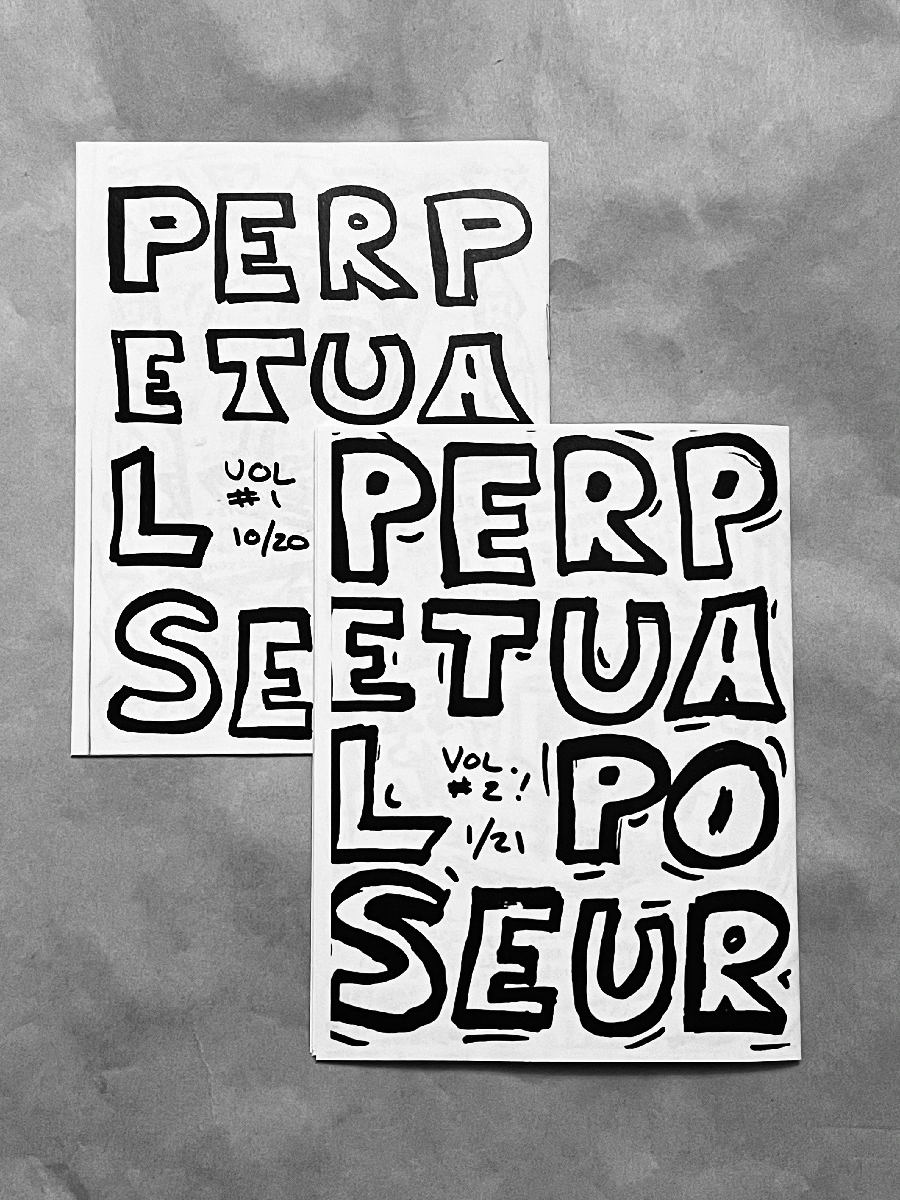 PERP
ETUA
L
VOL
#1
10/20
SE
PERP
ETUA
L PO
VOL.
#2!
1/21
SEUR